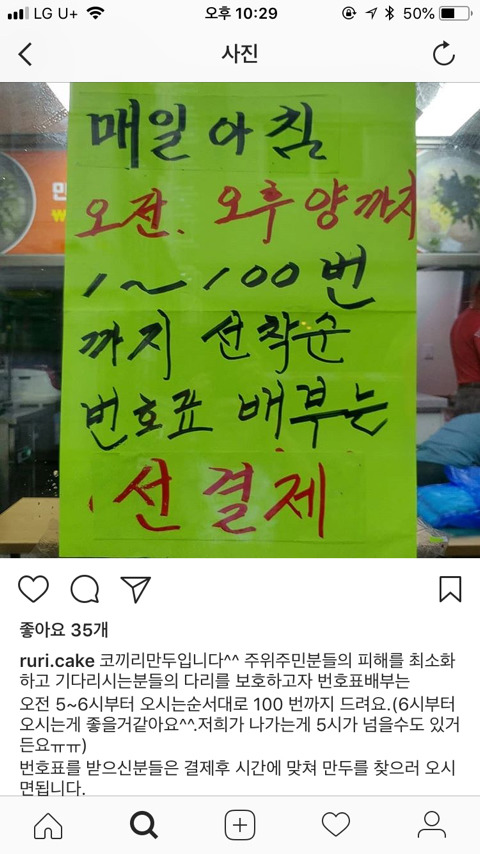 LG U+ 오후 10:29 50%
사진
매일 아침
오전. 오후 양까지
1~100번
까지 선착순
번호표 배부는
선결제
좋아요 35개
ruri.cake 코끼리만두입니다^^ 주위주민분들의 피해를 최소화
하고 기다리시는분들의 다리를 보호하고자 번호표배부는
오전 5~6시부터 오시는순서대로 100 번까지 드려요.(6시부터
오시는게 좋을거같아요^^.저희가 나가는게 5시가 넘을수도 있거
든요ㅠㅠ)
번호표를 받으신분들은 결제후 시간에 맞쳐 만두를 찾으러 오시
면됩니다.